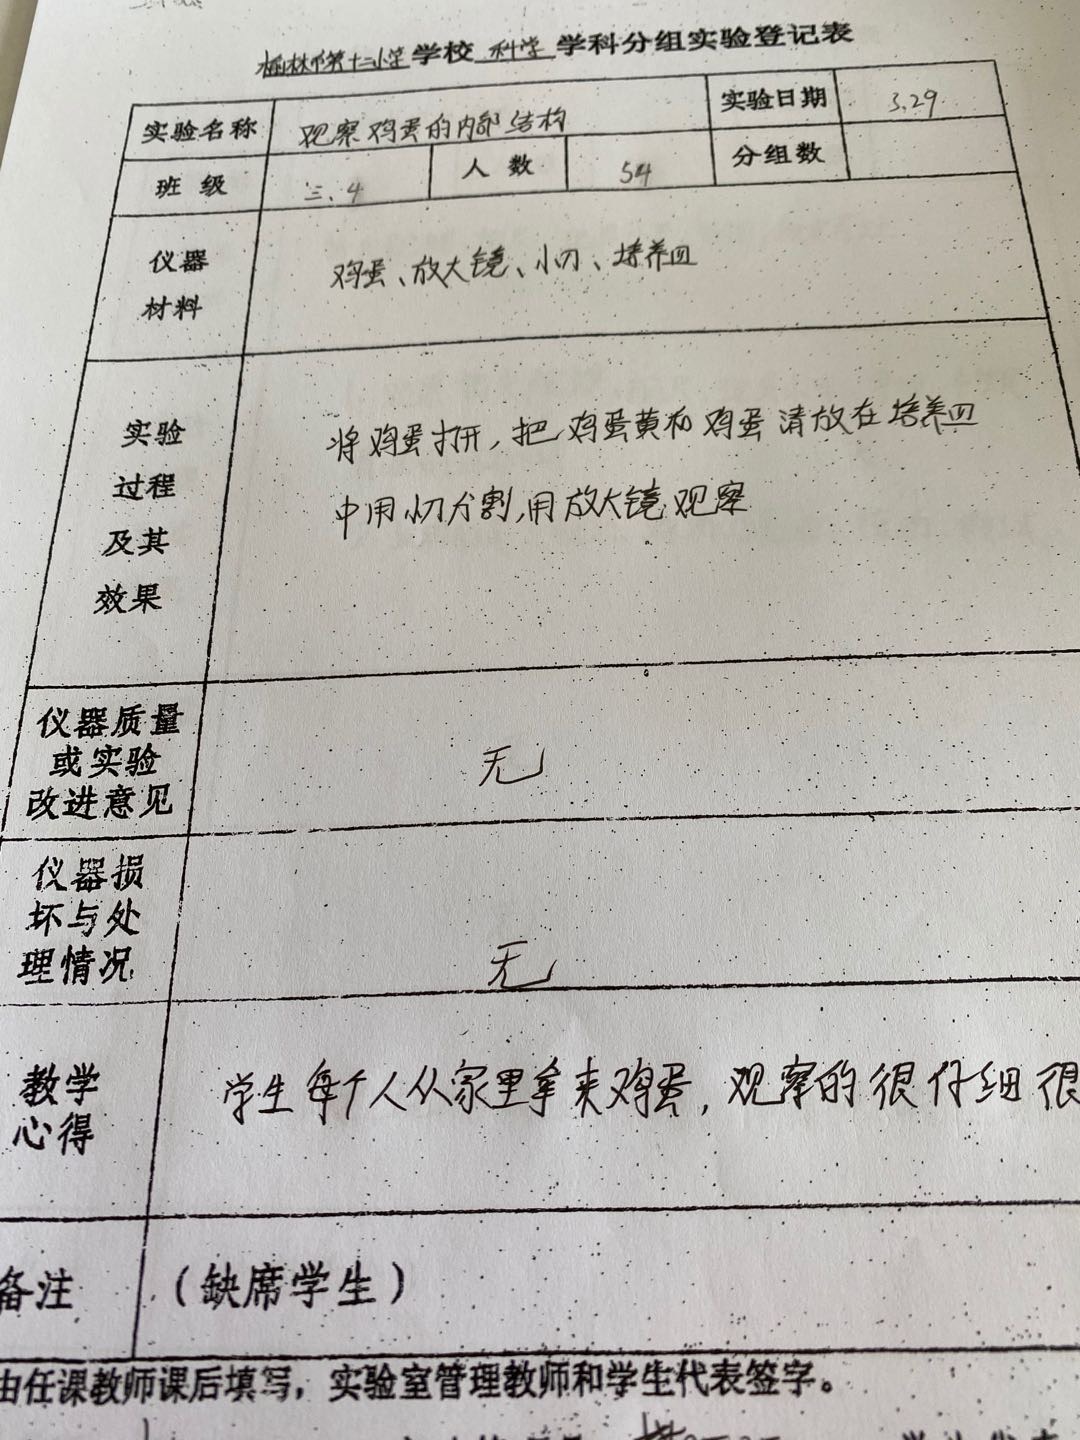 榆林市第十二小学学校 科学 学科分组实验登记表
实验名称 观察鸡蛋的内部结构 实验日期 3.29
班级 三.4 人数 54 分组数
仪器
材料
鸡蛋、放大镜、小刀、培养皿
实验
过程
及其
效果
将鸡蛋打开,把鸡蛋黄和鸡蛋清放在培养皿
中用小刀分割,用放大镜观察
仪器质量
或实验
改进意见
无
仪器损
坏与处
理情况
无
教学
心得
学生每个人从家里拿来鸡蛋,观察的很仔细很
备注 (缺席学生)
由任课教师课后填写,实验室管理教师和学生代表签字。